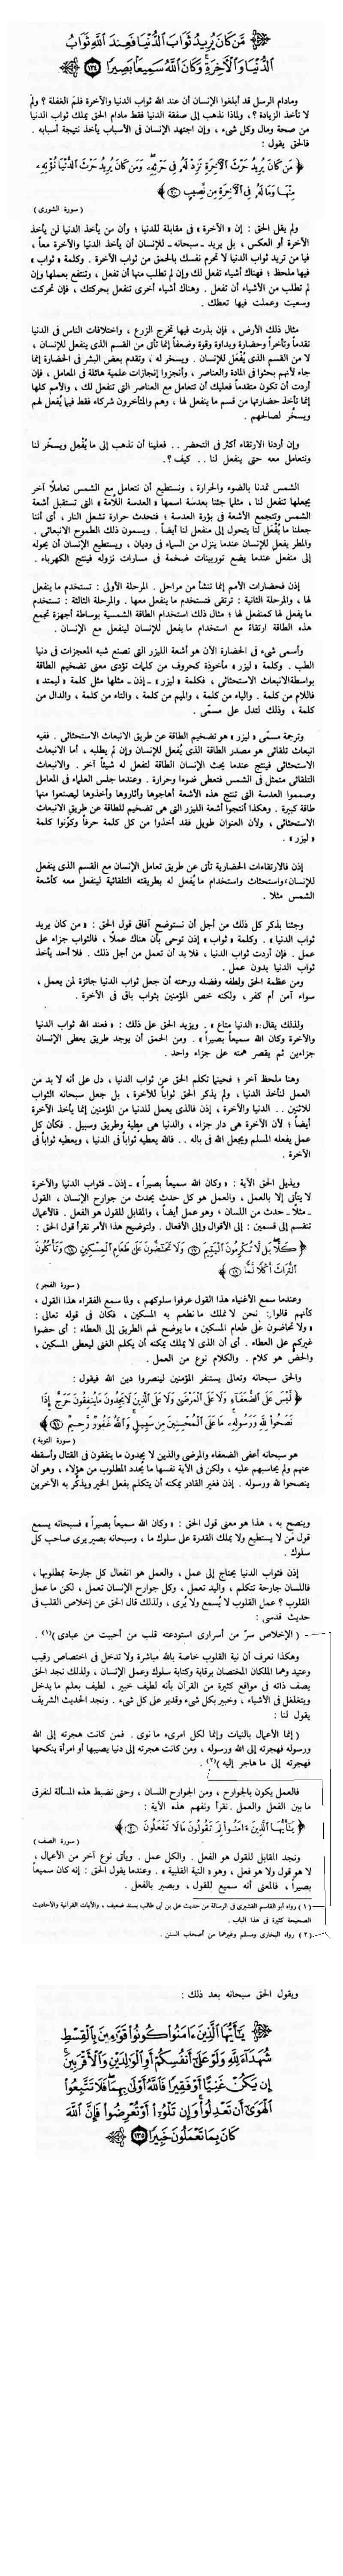 مَّن كَانَ يُرِيدُ ثَوَابَ الدُّنْيَا فَعِندَ اللَّهِ ثَوَابُ
الدُّنْيَا وَالْآخِرَةِ وَكَانَ اللَّهُ سَمِيعًا بَصِيرًا ١٣٤
ومادام الرسل قد أبلغوا الإنسان أن عند الله ثواب الدنيا والآخرة فلم الغفلة ؟ ولم
لا تأخذ الزيادة ؟، ولماذا نذهب إلى صفقة الدنيا فقط مادام الحق يملك ثواب الدنيا
من صحة ومال وكل شىء ، وإن اجتهد الإنسان فى الأسباب يأخذ نتيجة أسبابه .
فالحق يقول :
﴿ مَن كَانَ يُرِيدُ حَرْثَ الْآخِرَةِ نَزِدْ لَهُ فِى حَرْثِهِ وَمَن كَانَ يُرِيدُ حَرْثَ الدُّنْيَا نُؤْتِهِ
مِنْهَا وَمَا لَهُ فِى الْآخِرَةِ مِن نَّصِيبٍ ٢٠ ﴾
( سورة الشورى )
ولم يقل الحق : إن « الآخرة » فى مقابلة للدنيا ؛ وأن من يأخذ الدنيا لن يأخذ
الآخرة أو العكس ، بل يريد ـ سبحانه ـ للإنسان أن يأخذ الدنيا والآخرة معاً ،
فيا من تريد ثواب الدنيا لا تحرم نفسك بالحمق من ثواب الآخرة . وكلمة « ثواب »
فيها ملحظ ؛ فهناك أشياء تفعل لك وإن لم تطلب منها أن تفعل ، وتنتفع بعملها وإن
لم تطلب من الأشياء أن تفعل . وهناك أشياء أخرى تنفعل بحركتك ، فإن تحركت
وسعيت وعملت فيها تعطك .
مثال ذلك الأرض ، فإن بذرت فيها تخرج الزرع ، واختلافات الناس فى الدنيا
تقدماً وتأخراً وحضارة وبداوة وقوة وضعفاً إنما تأتى من القسم الذى ينفعل للإنسان ،
لا من القسم الذى يُفْعَل للإنسان . ويسخر له ، وتقدم بعض البشر فى الحضارة إنما
جاء لأنهم بحثوا فى المادة والعناصر ، وأنجزوا إنجازات علمية هائلة فى المعامل ، فإن
أردت أن تكون متقدماً فعليك أن تتعامل مع العناصر التى تنفعل لك ، والأمم كلها
إنما تأخذ حضارتها من قسم ما ينفعل لها ، وهم والمتأخرون شركاء فقط فيما يُفعل لهم
ويسخّر لصالحهم .
وإن أردنا الارتقاء أكثر فى التحضر . . فعلينا أن نذهب إلى ما يُفْعل ويسخّر لنا
ونتعامل معه حتى ينفعل لنا . . كيف ؟ .
الشمس تمدنا بالضوء والحرارة ، ونستطيع أن نتعامل مع الشمس تعاملاً آخر
يجعلها تنفعل لنا ، مثلما جئنا بعدسة اسمها « العدسة اللامّة » التى تستقبل أشعة
الشمس وتتجمع الأشعة فى بؤرة العدسة ؛ فتحدث حرارة تشعل النار ، أى أننا
جعلنا ما يُفعل لنا يتحول إلى منفعل لنا أيضاً . ويسمون ذلك الطموح الانبعاثى .
والمطر يفعل للإنسان عندما ينزل من السماء فى وديان ، ويستطيع الإنسان أن يحوله
إلى منفعل عندما يضع توربينات ضخمة فى مسارات نزوله فينتج الكهرباء .
إذن فحضارات الأمم إنما تنشأ من مراحل . المرحلة الأولى : تستخدم ما ينفعل
لها ، والمرحلة الثانية : ترتقى فتستخدم ما ينفعل معها . والمرحلة الثالثة : تستخدم
ما يفعل لها كمنفعل لها ؛ مثال ذلك استخدام الطاقة الشمسية بوساطة أجهزة تجمع
هذه الطاقة ارتقاءً مع استخدام ما يفعل للإنسان لينفعل مع الإنسان .
وأسمى شىء فى الحضارة الآن هو أشعة الليزر التى تصنع شبه المعجزات فى دنيا
الطب . وكلمة « ليزر » مأخوذة كحروف من كلمات تؤدى معنى تضخيم الطاقة
بواسطة الانبعاث الاستحثاثى ، فكلمة « ليزر » ـ إذن ـ مثلها مثل كلمة « ليمتد »
فاللام من كلمة . والياء من كلمة ، والميم من كلمة ، والتاء من كلمة ، والدال من
كلمة ، وذلك لتدل على مسمّى .
وترجمة مسمّى « ليزر » هو تضخيم الطاقة عن طريق الانبعاث الاستحثاثى . ففيه
انبعاث تلقائى هو مصدر الطاقة الذى يُفعل للإنسان وإن لم يطلبه ، أما الانبعاث
الاستحثاثى فينتج عندما يحث الإنسان الطاقة لتفعل له شيئاً آخر . والانبعاث
التلقائى متمثل فى الشمس فتعطى ضوءا وحرارة . وعندما جلس العلماء فى المعامل
وصمموا العدسة التى تنتج هذه الأشعة أهاجوها وأثاروها وأخذوها ليصنعوا منها
طاقة كبيرة . وهكذا أنتجوا أشعة الليزر التى هى تضخيم للطاقة عن طريق الانبعاث
الاستحثاثى ، ولأن العنوان طويل فقد أخذوا من كل كلمة حرفاً وكوّنوا كلمة
« ليزر » .
إذن فالارتقاءات الحضارية تأتى عن طريق تعامل الإنسان مع القسم الذى ينفعل
للإنسان، واستحثاث واستخدام ما يُفعل له بطريقته التلقائية لينفعل معه كأشعة
الشمس مثلا .
وجئنا بذكر كل ذلك من أجل أن نستوضح آفاق قول الحق : « من كان يريد
ثواب الدنيا » . وكلمة « ثواب » إذن توحى بأن هناك عملاً ، فالثواب جزاء على
عمل . فإن أردت ثواب الدنيا ، فلا بد أن تعمل من أجل ذلك . فلا أحد يأخذ
ثواب الدنيا بدون عمل .
ومن عظمة الحق ولطفه وفضله ورحمته أن جعل ثواب الدنيا جائزة لمن يعمل ،
سواء آمن أم كفر ، ولكنه خص المؤمنين بثواب باق فى الآخرة .
ولذلك يقال : « الدنيا متاع » . ويزيد الحق على ذلك : « فعند الله ثواب الدنيا
والآخرة وكان الله سميعاً بصيراً » . ومن الحمق أن يوجد طريق يعطى الإنسان
جزاءين ثم يقصر همته على جزاء واحد .
وهنا ملحظ آخر ؛ فحينما تكلم الحق عن ثواب الدنيا ، دل على أنه لا بد من
العمل لنأخذ الدنيا ، ولم يذكر الحق ثواباً للآخرة ، بل جعل سبحانه الثواب
للاثنين . . الدنيا والآخرة ، إذن فالذى يعمل للدنيا من المؤمنين إنما يأخذ الآخرة
أيضاً ؛ لأن الآخرة هى دار جزاء ، والدنيا هى مطية وطريق وسبيل . فكأن كل
عمل يفعله المسلم ويجعل الله فى باله . . فالله يعطيه ثواباً فى الدنيا ، ويعطيه ثواباً فى
الآخرة .
ويذيل الحق الآية : « وكان الله سميعاً بصيراً » ـ إذن ـ فثواب الدنيا والآخرة
لا يتأتى إلا بالعمل ، والعمل هو كل حدث يحدث من جوارح الإنسان ، القول
ـ مثلاً ـ حدث من اللسان ، وهو عمل أيضاً ، والمقابل للقول هو الفعل . فالأعمال
تنقسم إلى قسمين : إلى الأقوال وإلى الأفعال . ولتوضيح هذا الأمر نقرأ قول الحق :
﴿ كَلَّا بَل لَّا تُكْرِمُونَ الْيَتِيمَ ١٧ وَلَا تَحَٰضُّونَ عَلَىٰ طَعَامِ الْمِسْكِينِ ١٨ وَتَأْكُلُونَ
التُّرَاثَ أَكْلًا لَّمًّا ١٩ ﴾
( سورة الفجر )
وعندما سمع الأغنياء هذا القول عرفوا سلوكهم ، ولما سمع الفقراء هذا القول ،
كأنهم قالوا : نحن لا نملك ما نطعم به المسكين ، فكان فى قوله تعالى :
« ولا تحاضون على طعام المسكين » ما يوضح لهم الطريق إلى العطاء : أى حضوا
غيركم على العطاء . أى أن الذى لا يملك يمكنه أن يكلم الغنى ليعطى المسكين ،
والحضّ هو كلام . والكلام نوع من العمل .
والحق سبحانه وتعالى يستنفر المؤمنين لينصروا دين الله فيقول :
﴿ لَّيْسَ عَلَى الضُّعَفَاءِ وَلَا عَلَى الْمَرْضَىٰ وَلَا عَلَى الَّذِينَ لَا يَجِدُونَ مَا يُنفِقُونَ حَرَجٌ إِذَا
نَصَحُوا لِلَّهِ وَرَسُولِهِ مَا عَلَى الْمُحْسِنِينَ مِن سَبِيلٍ وَاللَّهُ غَفُورٌ رَّحِيمٌ ٩١ ﴾
( سورة التوبة )
هو سبحانه أعفى الضعفاء والمرضى والذين لا يجدون ما ينفقون فى القتال وأسقطه
عنهم ولم يحاسبهم عليه ، ولكن فى الآية نفسها ما يُحدد المطلوب من هؤلاء ، وهو أن
ينصحوا لله ورسوله . إذن فغير القادر يمكنه أن يتكلم بفعل الخير ويذكّر به الآخرين
وينصح به ، هذا هو معنى قول الحق : « وكان الله سميعاً بصيراً » فسبحانه يسمع
قول من لا يستطيع ولا يملك القدرة على سلوك ما ، وسبحانه بصير يرى صاحب كل
سلوك .
إذن فثواب الدنيا يحتاج إلى عمل ، والعمل هو انفعال كل جارحة بمطلوبها ،
فاللسان جارحة تتكلم ، واليد تعمل ، وكل جوارح الإنسان تعمل ، لكن ما عمل
القلوب ؟ عمل القلوب لا يُسمع ولا يُرى ، ولذلك قال الحق عن إخلاص القلب فى
حديث قدسى :
( الإخلاص سرّ من أسرارى استودعته قلب من أحببت من عبادى )(١) .
وهكذا نعرف أن نية القلوب خاصة بالله مباشرة ولا تدخل فى اختصاص رقيب
وعتيد وهما الملكان المختصان برقابة وكتابة سلوك وعمل الإنسان ، ولذلك نجد الحق
يصف ذاته فى مواقع كثيرة من القرآن بأنه لطيف خبير ، لطيف بعلم ما يدخل
ويتغلغل فى الأشياء ، وخبير بكل شىء وقدير على كل شىء . ونجد الحديث الشريف
يقول لنا :
( إنما الأعمال بالنيات وإنما لكل امرىء ما نوى . فمن كانت هجرته إلى الله
ورسوله فهجرته إلى الله ورسوله ، ومن كانت هجرته إلى دنيا يصيبها أو امرأة ينكحها
فهجرته إلى ما هاجر إليه )(٢) .
فالعمل يكون بالجوارح ، ومن الجوارح اللسان ، وحتى نضبط هذه المسألة لنفرق
ما بين الفعل والعمل . نقرأ ونفهم هذه الآية :
﴿ يَٰأَيُّهَا الَّذِينَ ءَامَنُوا لِمَ تَقُولُونَ مَا لَا تَفْعَلُونَ ٢ ﴾
( سورة الصف )
ونجد المقابل للقول هو الفعل . والكل عمل . ويأتى نوع آخر من الأعمال ،
لا هو قول ولا هو فعل ، وهو « النية القلبية » . وعندما يقول الحق : إنه كان سميعاً
بصيراً ، فالمعنى أنه سميع للقول ، وبصير بالفعل .
( ١ ) رواه أبو القاسم القشيرى فى الرسالة من حديث على بن أبى طالب بسند ضعيف ، والآيات القرآنية والأحاديث
الصحيحة كثيرة فى هذا الباب .
( ٢ ) رواه البخارى ومسلم وغيرهما من أصحاب السنن .
ويقول الحق سبحانه بعد ذلك :
يَٰأَيُّهَا الَّذِينَ ءَامَنُوا كُونُوا قَوَّٰمِينَ بِالْقِسْطِ
شُهَدَاءَ لِلَّهِ وَلَوْ عَلَىٰ أَنفُسِكُمْ أَوِ الْوَٰلِدَيْنِ وَالْأَقْرَبِينَ
إِن يَكُنْ غَنِيًّا أَوْ فَقِيرًا فَاللَّهُ أَوْلَىٰ بِهِمَا فَلَا تَتَّبِعُوا
الْهَوَىٰ أَن تَعْدِلُوا وَإِن تَلْوُۥا أَوْ تُعْرِضُوا فَإِنَّ اللَّهَ
كَانَ بِمَا تَعْمَلُونَ خَبِيرًا ١٣٥